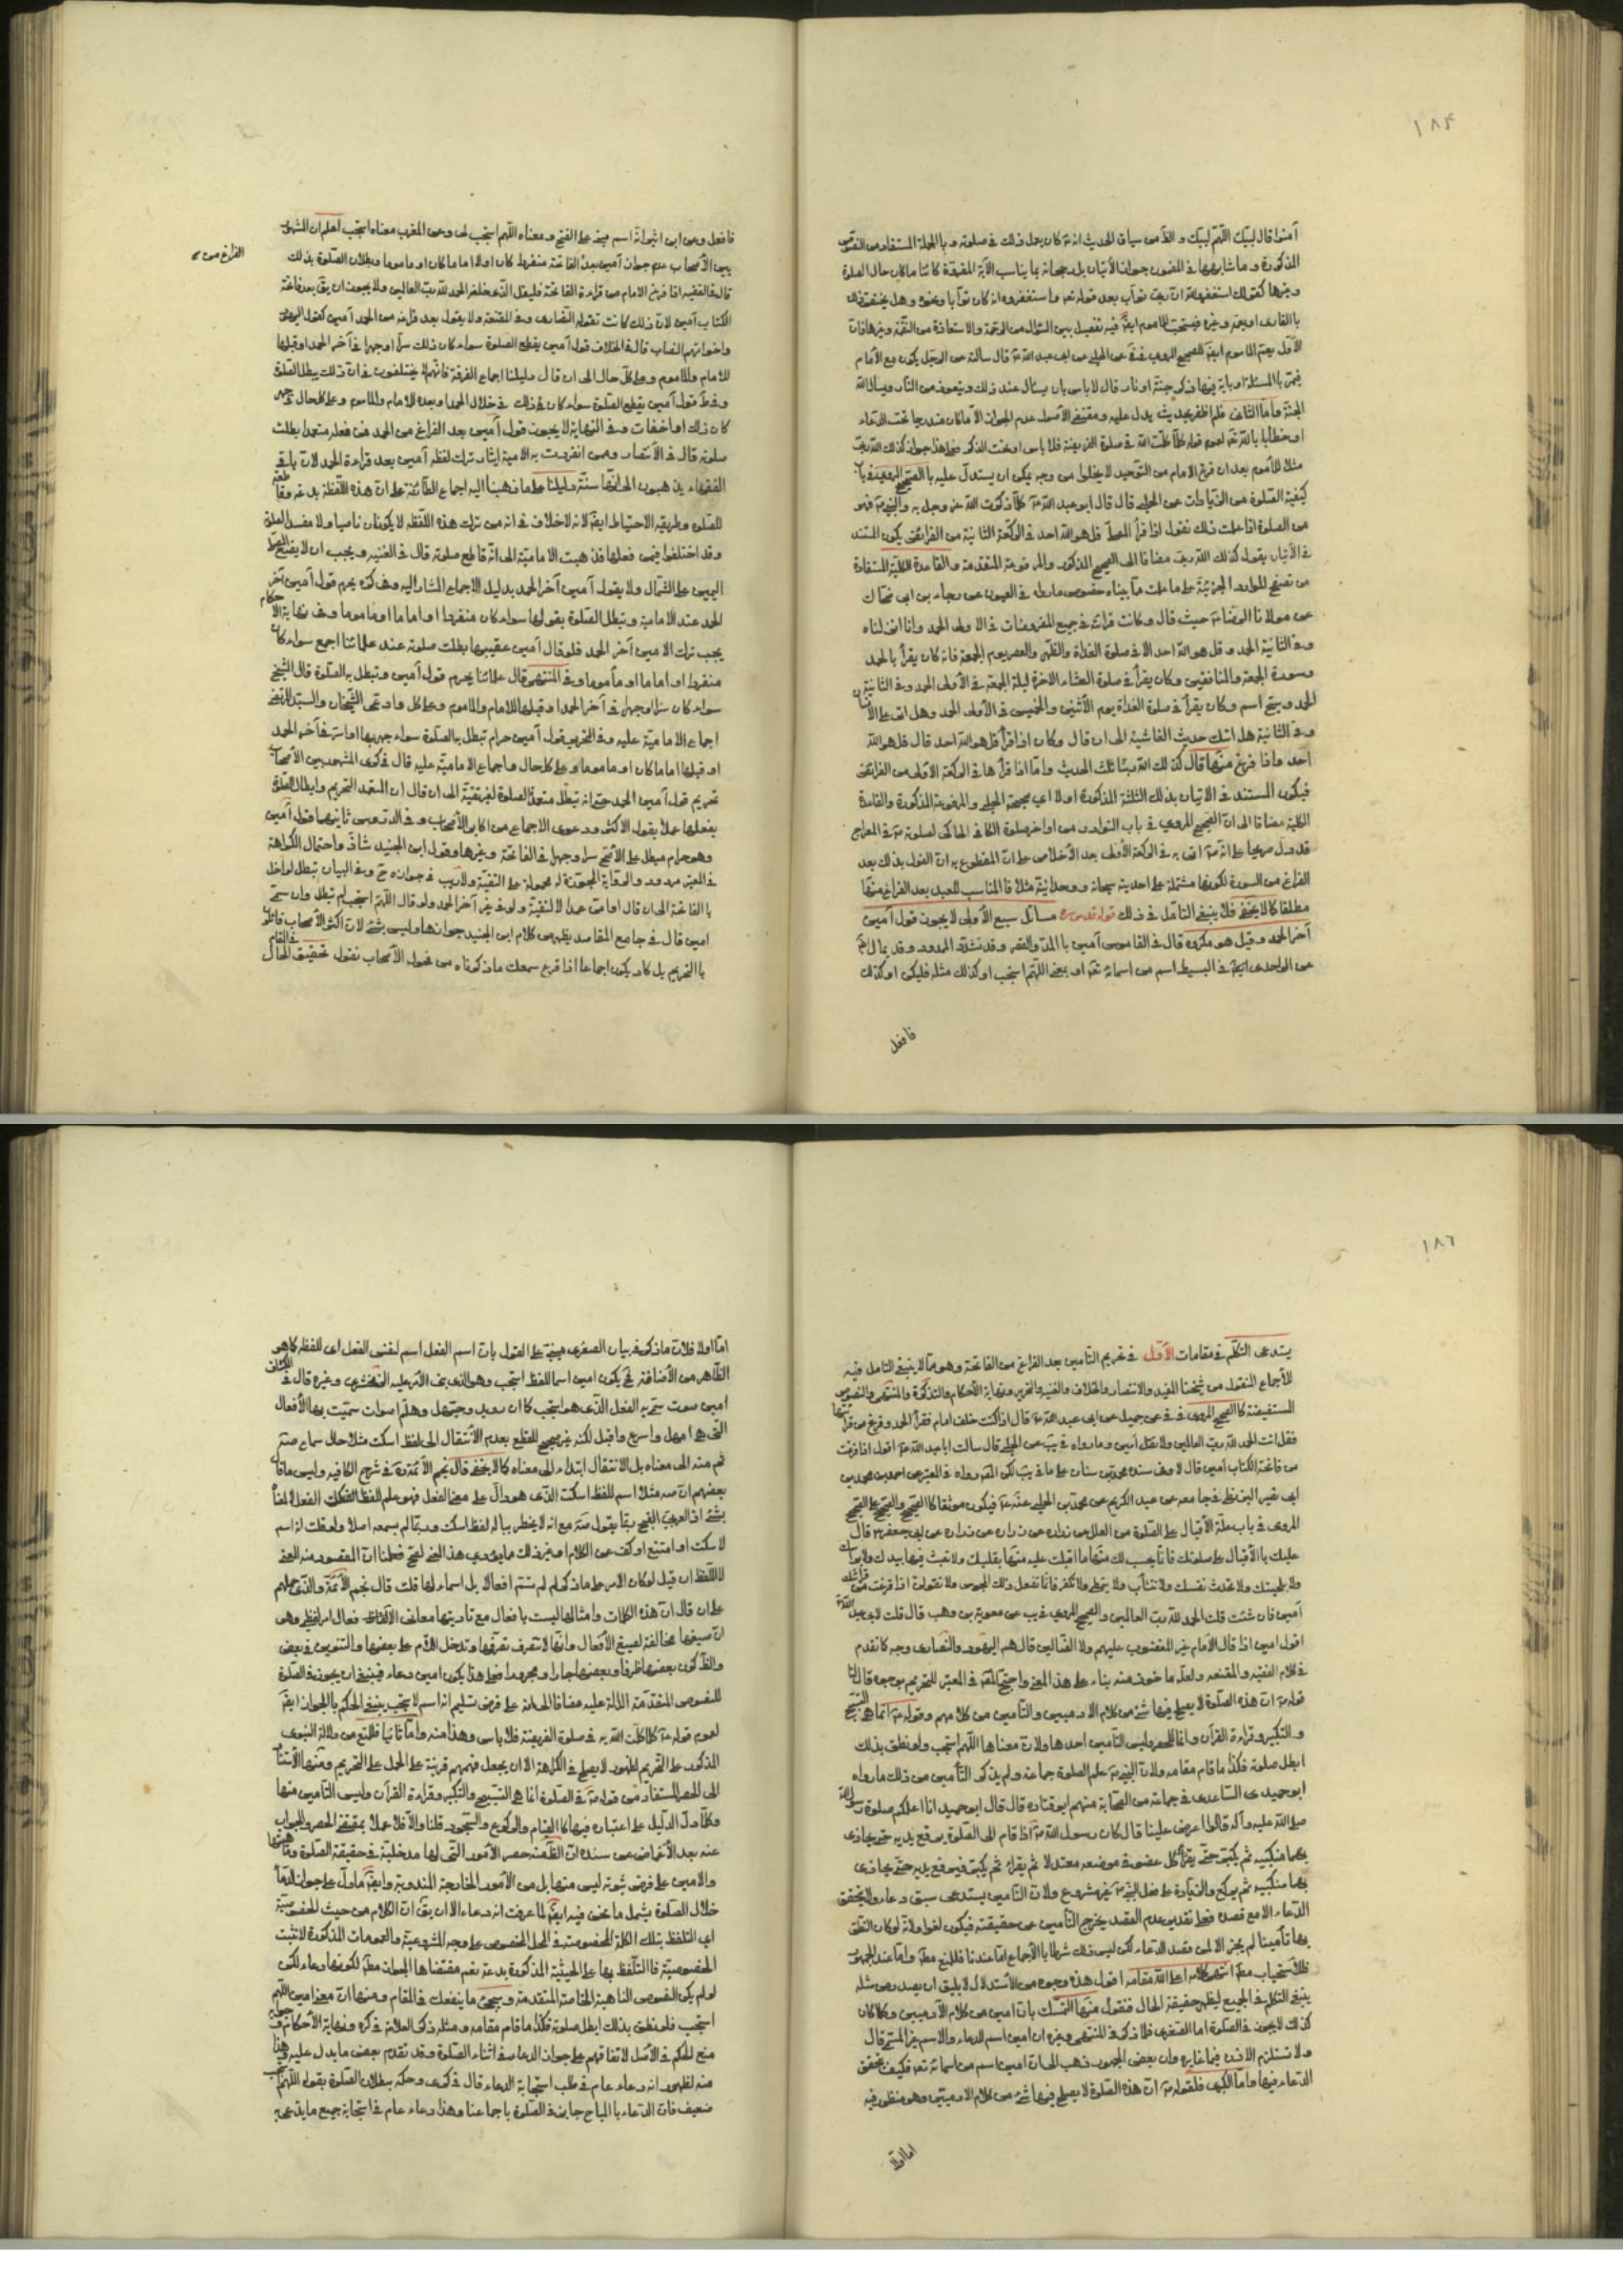 ١٨٥
آمنوا قال لبيك اللهم لبيك و الظ من سياق الحديث انه كان يقول ذلك في صلوته و بالجملة المستفاد من النصوص
المذكورة و ما شابهها في المضمون جواز الأتيان بل رجحانه بما يناسب الآية المقروة كائنا ما كان حال الصلوة
و غيرها كقولك استغفر الله ان ربي تواب بعد قوله تعه و استغفروه انه كان توابا و نحوه و هل يختص ذلك
بالقارى او يعم و غيره فيستحب للماموم ايضا فيه تفصيل بين السؤال من الرحمة و الاستعاذة من النقمة و غيرهما فان
الأول يعم الماموم ايضا للصحيح المروي في في عن الحلبي عن ابي عبد الله ع قال سألته عن الرجل يكون مع الأمام
فيمر بالمسئلة او باية فيها ذكر جنة او نار قال لا باس بان يسأل عند ذلك و يتعوذ من النار و يسأل الله
الجنة و أما الثاني فلم اظفر بحديث يدل عليه و مقتضى الأصول عدم الجواز الا ما كان مندرجا تحت الدعاء
او خطابا بالله تعه لعموم قوله كلما كلمت الله في صلوة الفريضة فلا باس او تحت الذكر فعلى هذا جواز كذلك الله ربي
مثلا للمأموم بعد ان فرغ الامام من التوحيد لا يخلوا من وجه يمكن ان يستدل عليه بالصحيح المروي في باب
كيفية الصلوة من الزيادات عن الحلبي قال قال ابو عبد الله ع كلما ذكرت الله عز وجل به و النبي ص فهو
من الصلوة اذا علمت ذلك نقول اذا قرأ المصلى قل هو الله احد في الركعة الثانية من الفرائض يكون المستند
في الأتيان بقول كذلك الله ربي مضافا الى الصحيح المذكور و المرفوعة المتقدمة و القاعدة الكلية المستفادة
من تصفح الموارد الجزئية على ما علمت مما بيناه خصوص ما رواه في العيون عن رجاء بن ابي ضحاك
عن مولانا الرضا ع حيث قال و كانت قرائته في جميع المفروضات في الاولى الحمد و انا انزلناه
و في الثانية الحمد و قل هو الله احد الا في صلوة الغداة و الظهر و العصر يوم الجمعة فانه كان يقرأ بالحمد
و سورة الجمعة و المنافقين و كان يقرأ في صلوة العشاء الاخرة ليلة الجمعة في الأولى الحمد و في الثانية
الحمد و سبح اسم و كان يقرأ في صلوة الغداة يوم الأثنين و الخميس في الأولى الحمد و هل اتى على الأنسان
و في الثانية هل اتيك حديث الغاشية الى ان قال و كان اذا قرأ قل هو الله احد قال قل هو الله
احد و اذا فرغ منها قال كذلك الله ربنا ثلث الحديث و اما اذا قرأها في الركعة الاولى من الفرائض
فيكون المستند في الاتيان بذلك الثلثة المذكورة اولا اي صحيحة الحلبي و المرفوعة المذكورة و القاعدة
الكلية مضافا الى ان الصحيح المروي في باب النوادر من اواخر صلوة الكافي الحاكى لصلوته ص في المعراج
قد دل صريحا على انه ص اتى به في الركعة الأولى بعد الأخلاص على ان المقطوع به ان القول بذلك بعد
الفراغ من السورة لكونها مشتملة على احديته سبحانه و وحدانيته مثلا فالمناسب للعبد بعد الفراغ منها
مطلقا كما لا يخفى فلا ينبغي التامل في ذلك قوله قدس سره مسائل سبع الأولى لا يجوز قول آمين
آخر الحمد و قيل هو مكروه قال في القاموس آمين بالمد و القصر و قد تشدد الممدود و قد يمال ايضا
عن الواحدى ايضا في البسيط اسم من اسمائه تعه او معنى اللهم استجب او كذلك مثله فليكن او كذلك
فافعل
فافعل و عن ابن اثير انه اسم مبنى على الفتح و معناه اللهم استجب لى و عن المغرب معناه استجب اعلم ان المشهور
بين الأصحاب عدم جواز آمين بعد الفاتحة منفردا كان او لا اماما كان او ماموما و بطلان الصلوة بذلك
الفراغ من صح
قال في الفقيه اذا فرغ الامام من قراءة الفاتحة فليقل الذى خلفه الحمد لله رب العالمين و لا يجوز ان يق بعد فاتحة
الكتاب آمين لان ذلك كانت تقوله النصارى و في المقنعة و لا يقول بعد فراغه من الحمد آمين كقول اليهود
و اخوانهم النصاب قال في الخلاف قول آمين يقطع الصلوة سواء كان ذلك سرا او جهرا في آخر الحمد او قبلها
للامام و الماموم و على كل حال الى ان قال دليلنا اجماع الفرقة فانهم لا يختلفون في ان ذلك يبطل الصلوة
و في ط قول آمين يقطع الصلوة سواء كان في ذلك في خلال الحمد او بعده للامام و الماموم و على كل حال جهر
كان ذلك او اخفات و في النهاية لا يجوز قول آمين بعد الفراغ من الحمد فمن فعله متعمدا بطلت
صلوته قال في الأنتصار و ممن انفردت به الامامية ايثار ترك لفظة آمين بعد قراءة الحمد لان باقي
الفقهاء يذهبون الى انها سنة دليلنا على ما ذهبنا اليه اجماع الطائفة على ان هذه اللفظة بدعة و قاطعة
للصلوة و طريقة الاحتياط ايضا لانه لا خلاف في انه من ترك هذه اللفظة لا يكون عاصيا و لا مفسد الصلوة
و قد اختلفوا فيمن فعلها فذهبت الامامية الى انه قاطع صلوته قال في الغنية و يجب ان لا يضع المصلى
اليمين على الشمال و لا يقول آمين آخر الحمد بدليل الاجماع المشار اليه و في كره يحرم قول آمين آخر
الحمد عند الامامية و تبطل الصلوة بقولها سواء كان منفردا او اماما او ماموما و في نهاية الاحكام
يجب ترك الامين آخر الحمد فلو قال آمين عقيبها بطلت صلوته عند علمائنا اجمع سواء كان
منفردا او اماما او مأموما و في المنتهى قال علمائنا يحرم قول آمين و تبطل به الصلوة قال الشيخ
سواء كان سرا او جهرا في آخر الحمد او قبلها للامام و الماموم و على كل و ادعى الشيخان و السيد المرتضى
اجماع الامامية عليه و في التحرير قول آمين حرام تبطل به الصلوة سواء جهر بها او اسر في آخر الحمد
او قبلها اماما كان او ماموما و على كل حال و اجماع الامامية عليه قال في ذكرى المشهور بين الأصحاب
تحريم قول آمين الحمد حتى انه تبطل متعمد الصلوة لغير تقية الى ان قال ان المعتمد التحريم و ابطال الصلوة
بفعلها عملا بقول الاكثر و دعوى الاجماع من اكابر الأصحاب و في الدروس ثانيها قول آمين
و هو حرام مبطل على الأصح سرا و جهرا في الفاتحة و غيرها و قول ابن الجنيد شاذ و احتمال الكراهة
في المعتبر مردود و الرواية المجوزة له محمولة على التقية و لا ريب في جوازه ح و في البيان تبطل لو اخل
بالفاتحة الى ان قال او امن عمدا لا لتقية و لو في غير آخر الحمد و لو قال اللهم استجب لم تبطل و ان سمى
امين قال في جامع المقاصد يظهر من كلام ابن الجنيد جوازها و ليس بشئ لان اكثر الأصحاب قائلون
بالتحريم بل كاد يكون اجماعا اذا قرع سمعك ما ذكرناه من فحول الأصحاب نقول تحقيق الحال في المقام
١٨٦
يستدعى التكلم في مقامات الأول في تحريم التامين بعد الفراغ من الفاتحة و هو مما لا ينبغي التامل فيه
للأجماع المنقول من شيخنا المفيد و الانتصار و الخلاف و الغنية و التحرير و نهاية الأحكام و التذكرة و المنتهى و النصوص
المستفيضة كالصحيح المروي في في عن جميل عن ابي عبد الله ع قال اذا كنت خلف امام فقرأ الحمد و فرغ من قرائتها
فقل انت الحمد لله رب العالمين و لا تقل آمين و ما رواه في يب عن الحلبي قال سالت ابا عبد الله ع اقول اذا فرغت
من فاتحة الكتاب آمين قال لا و في سنده محمد بن سنان على ما في يب لكن المحقق رواه في المعتبر عن احمد بن محمد بن
ابي نصير البزنطى في جامعه عن عبد الكريم عن محمد بن الحلبي عنه ع فيكون موثقا كالصحيح و الصحيح على الصحيح
المروى في باب علة الأقبال على الصلوة من العلل عن زرارة عن ابي جعفر ع قال
عليك بالأقبال على صلوتك فانما يحسب لك منها ما اقبلت عليه منها بقلبك و لا تعبث فيها بيدك و لا براسك
و لا بلحيتك و لا تحدث نفسك و لا تتثأب و لا تتمطى و لا تكفر فانما تفعل ذلك المجوس و لا تقولن اذا فرغت من قرائتك
آمين فان شئت قلت الحمد لله رب العالمين و الصحيح المروي في يب عن معوية بن وهب قال قلت لابي عبد الله ع
اقول امين اذا قال الامام غير المغضوب عليهم و لا الضالين قال هم اليهود و النصارى وجه كما تقدم
في كلام الفقيه و المقنعة و لعله ماخوذ منه بناء على هذا المعنى و احتج المحقق في المعتبر للتحريم بوجوه قال لنا
قوله ص ان هذه الصلوة لا يصلح فيها شئ من كلام الادميين و التأمين من كلامهم و قوله ص انما هي التسبيح
و التكبير و قراءة القرآن و انما للحصر و ليس التأمين احدها و لان معناها اللهم استجب و لو نطق بذلك
ابطل صلوته فكذا ما قام مقامه و لان النبي ص علم الصلوة جماعة و لم يذكر التأمين من ذلك ما رواه
ابو حميد الساعدى في جماعة من الصحابة منهم ابو قتادة قال قال ابو حميد انا اعلمكم صلوة رسول الله
صلى الله عليه و آله قالوا اعرض علينا قال كان رسول الله ص اذا قام الى الصلوة يرفع يديه حتى يحاذى
بهما منكبيه ثم يكبر حتى يقر كل عضو في موضعه معتدلا ثم يقراء ثم يكبر فيرفع يديه حتى يحاذى
بهما منكبيه ثم يركع و الزيادة على فعل النبي ص غير مشروع و لان التامين يستدعى سبق دعاء و لا يتحقق
الدعاء الا مع قصده فعلى تقدير عدم القصد يخرج التأمين عن حقيقته فيكون لغوا و لانه لو كان النطق
بها تأمينا لم يجز الا لمن قصد الدعاء لكن ليس ذلك شرطا بالأجماع اما عندنا فللمنع مط و اما عند الجمهور
فللأستحباب مط انتهى كلامه اعلى الله مقامه اقول هذه وجوه من الأستدلال لا يليق ان يصدر من مثله
ينبغى التكلم في الجميع ليظهر حقيقة الحال فنقول منها التمسك بان امين من كلام الآدميين و كلما كان
كذلك لا يجوز في الصلوة اما الصغرى فلما ذكر في المنتهى و غيره ان امين اسم للدعاء و الاسم غير المسمى قال
و لا تستلزم الاذن فيما غايره و ان بعض الجمهور ذهب الى ان امين اسم من اسمائه تعه فكيف يتحقق
الدعاء فيها و اما الكبرى فلقوله ص ان هذه الصلوة لا يصلح فيها شئ من كلام الادميين و هو منظور فيه
اما اولا
اما اولا فلان ما ذكر في بيان الصغرى مبنية على القول بان اسم الفعل اسم لنفس الفعل اى للفظه كما هو
الظاهر من الأضافة فح يكون امين اسما للفظ استجب و هو الذى نص الأمر عليه الزمخشرى و غيره قال في الكشاف
امين صوت سمى به الفعل الذى هو استجب كما ان رويد و حيهل و هلم اصوات سميت بها الأفعال
التى هي امهل و اسرع و اقبل لكنه غير صحيح للقطع بعدم الأنتقال الى لفظ اسكت مثلا حال سماع صه
ثم منه الى معناه بل الانتقال ابتداء الى معناه كما لا يخفى قال نجم الأئمة ره في شرح الكافية و ليس ما قال
بعضهم ان صه مثلا اسم للفظ اسكت الذى هو دال على معنى الفعل فهو علم للفظ الفعل لا لمعناه
بشئ اذ العربي القح ربما يقول صه مع انه لا يخطر بباله لفظ اسكت و ربما لم يسمعه اصلا و لو قلت انه اسم
لا سكت او امتنع او كف عن الكلام او غير ذلك مما يؤدى هذا المعنى لصح فعلمنا ان المقصود منه المعنى
لا اللفظ ان قيل لو كان الامر على ما ذكر لم لم تسم افعالا بل اسماء لها قلت قال نجم الأئمة و الذى حملهم
على ان قال ان هذه الكلمات و امثالها ليست بافعال مع تاديتها معانى الأفعال امر لفظى و هو
ان صيغها مخالفة لصيغ الأفعال و انها لا تتصرف تصرفها و تدخل اللام على بعضها و التنوين في بعض
و الظ كون بعضها ظرفا و بعضها جارا و مجرورا فعلى هذا يكون امين دعاء فينبغى ان يجوز في الصلوة
للنصوص المتقدمة الدالة عليه مضافا الى انه على فرض تسليم انه اسم لاستجب ينبغى الحكم بالجواز ايضا
لعموم قوله ع كلما كلمت الله به في صلوة الفريضة فلا باس و هذا منه و اما ثانيا فللمنع من دلالة النبوى
المذكور على التحريم لظهور لا يصلح في الكراهة الا ان يجعل فهمهم قرينة على الحمل على التحريم و منها الأستناد
الى الحصر المستفاد من قوله ص في الصلوة انما هي التسبيح و التكبير و قراءة القرآن و ليس التامين منها
و كلما دل الدليل على اعتباره فيها كالقيام و الركوع و السجود قلنا و الا فلا عملا بمقتضى الحصر و الجواب
عنه بعد الأغماض عن سنده ان الظ منه حصر الأمور التى لها مدخلية في حقيقة الصلوة و ماهيتها
و الامين على فرض ثبوته ليس منها بل من الأمور الخارجة المندوبة و ايضا ما دل على جواز الدعاء
خلال الصلوة يشمل ما نحن فيه ايضا لما عرفت انه دعاء الا ان يق ان الكلام من حيث الخصوصية
اى التلفظ بتلك الكلمة المخصوصة في المحل المخصوص على وجه المشروعية و العمومات المذكورة لا تثبت
الخصوصية فالتلفظ بها على الحيثية المذكورة بدعة نعم مقتضاها الجواز مط لكونها دعاء لكن
لو لم يكن النصوص الناهية الخاصة المتقدمة و سيجئ ما ينفعك في المقام و منها ان معنى امين اللهم
استجب فلو نطق بذلك ابطل صلوته فكذا ما قام مقامه و مثله ذكر العلامة في كره و نهاية الأحكام و جوابه
منع الحكم في الأصل لاتفاقهم على جواز الدعاء في اثناء الصلوة و قد تقدم بعض ما يدل عليه و هنا
منه لظهور انه دعاء عام في طلب استجابة الدعاء قال في ذكرى و حكمه ببطلان الصلوة بقوله اللهم استجب
ضعيف فان الدعاء بالمباح جايز في الصلوة باجماعنا و هذا دعاء عام في استجابة جميع ما يدعى به